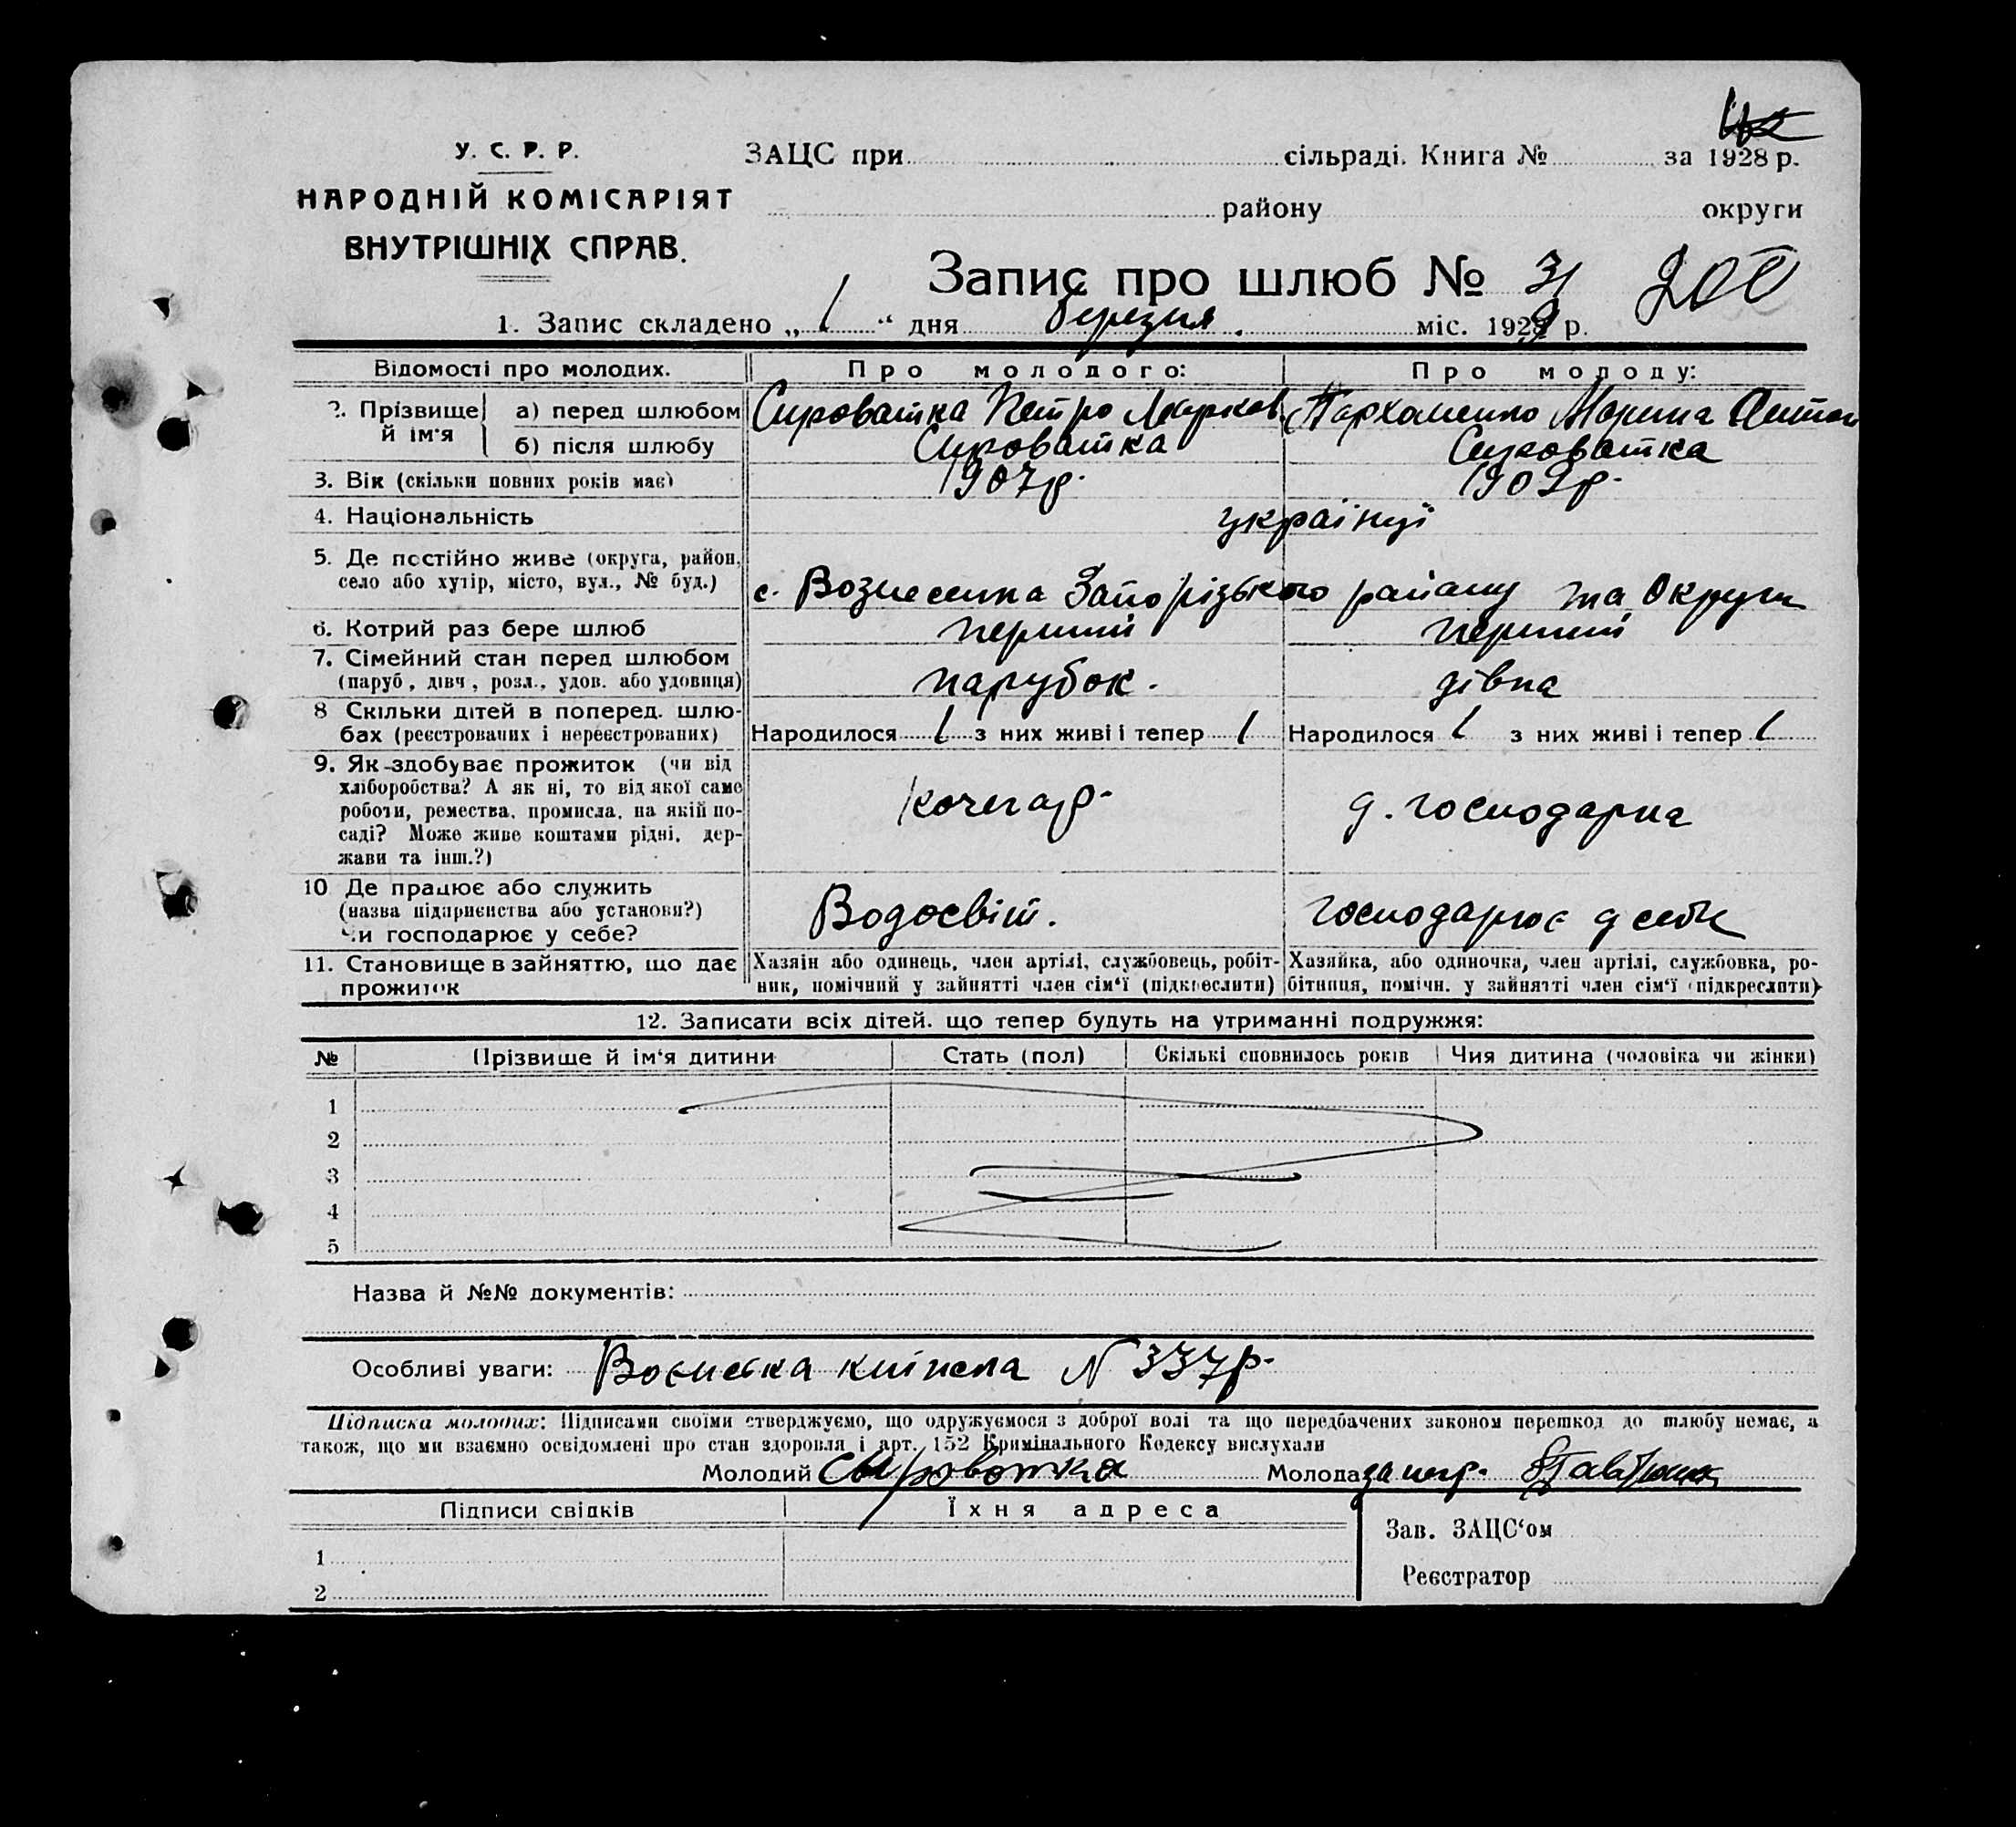 У. С. Р. Р.
НАРОДНІЙ КОМІСАРІЯТ
ВНУТРІШНІХ СПРАВ.
ЗАЦС при сільраді. Книга № за 1928 р.
району округи
Запис про шлюб № 31 200
1. Запис складено „ 1 “ дня березня міс. 1929 р.
Відомості про молодих. Про молодого: Про молоду:
2. Прізвище й ім'я а) перед шлюбом Сироватка Петро Марков. Пархоменко Марина Антон
б) після шлюбу Сироватка Сироватка
3. Вік (скільки повних років має) 1907р. 1909р.
4. Національність українці
5. Де постійно живе (округа, район, село або хутір, місто, вул., № буд.) с. Вознесенка Запорізького району та Округи
6. Котрий раз бере шлюб перший перший
7. Сімейний стан перед шлюбом
(паруб., дівч., розл., удов. або удовиця) парубок. дівка
8 Скільки дітей в поперед. шлю-
бах (реєстрованих і нереєстрованих) Народилося / з них живі і тепер / Народилося / з них живі і тепер /
9. Як здобуває прожиток (чи від
хліборобства? А як ні, то від якої саме
роботи, ремества, промисла, на якій по-
саді? Може живе коштами рідні, дер-
жави та інш.?)
кочегар. д. господарка
10 Де працює або служить
(назва підприємства або установи?)
Чи господарює у себе?
Водосвіт. господарює у себе
11. Становище в зайняттю, що дає
прожиток
Хазяїн або одинець, член артілі, службовець, робіт-
ник, помічний у зайнятті член сім'ї (підкреслити)
Хазяйка, або одиночка, член артілі, службовка, ро-
бітниця, помічн. у зайнятті член сім'ї (підкреслити)
12. Записати всіх дітей, що тепер будуть на утриманні подружжя:
№ Прізвище й ім'я дитини Стать (пол) Скількі сповнилось років Чия дитина (чоловіка чи жінки)
1
2
3
4
5
Назва й №№ документів:
Особливі уваги: N 337р.
Підписка молодих: Підписами своїми стверджуємо, що одружуємося з доброї волі та що передбачених законом перешкод до шлюбу немає, а
також, що ми взаємно освідомлені про стан здоровля і арт. 152 Кримінального Кодексу вислухали
Молодий Сыроватка Молода за негр.
Підписи свідків Їхня адреса
Зав. ЗАЦС'ом
1
Реєстратор
2